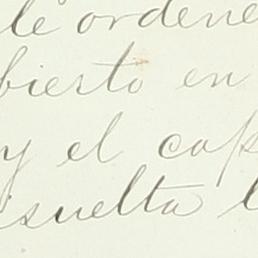 le ordene
bierto en
y el cap
isuelta l